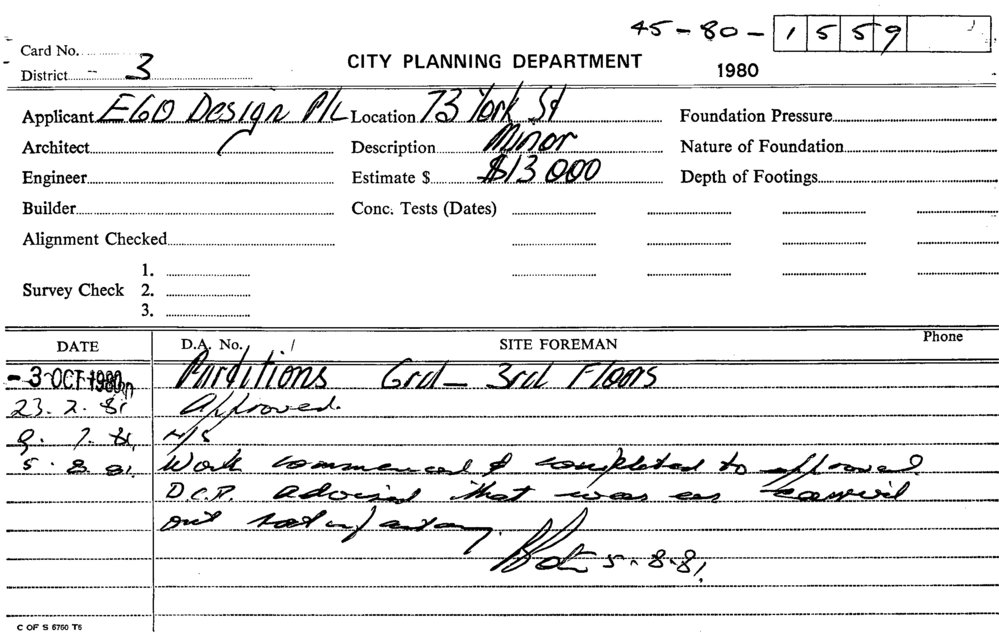 45-80-1559
Card No.
District 3
CITY PLANNING DEPARTMENT
1980
Applicant EGO Design P/L Location 73 York St Foundation Pressure
Architect Description Minor Nature of Foundation
Engineer Estimate $ $13 000 Depth of Footings
Builder Conc. Tests (Dates)
Alignment Checked
1.
Survey Check 2.
3.
DATE D.A. No. SITE FOREMAN Phone
-3 OCT 1980 Partitions Grd - 3rd Floors
23. 2. 81 Approved.
9. 7. 81 N/S
5. 8. 81 Work commenced & completed to approved
D.C.P. advised that was carried
out
5-8-81
C OF S 6760 T6